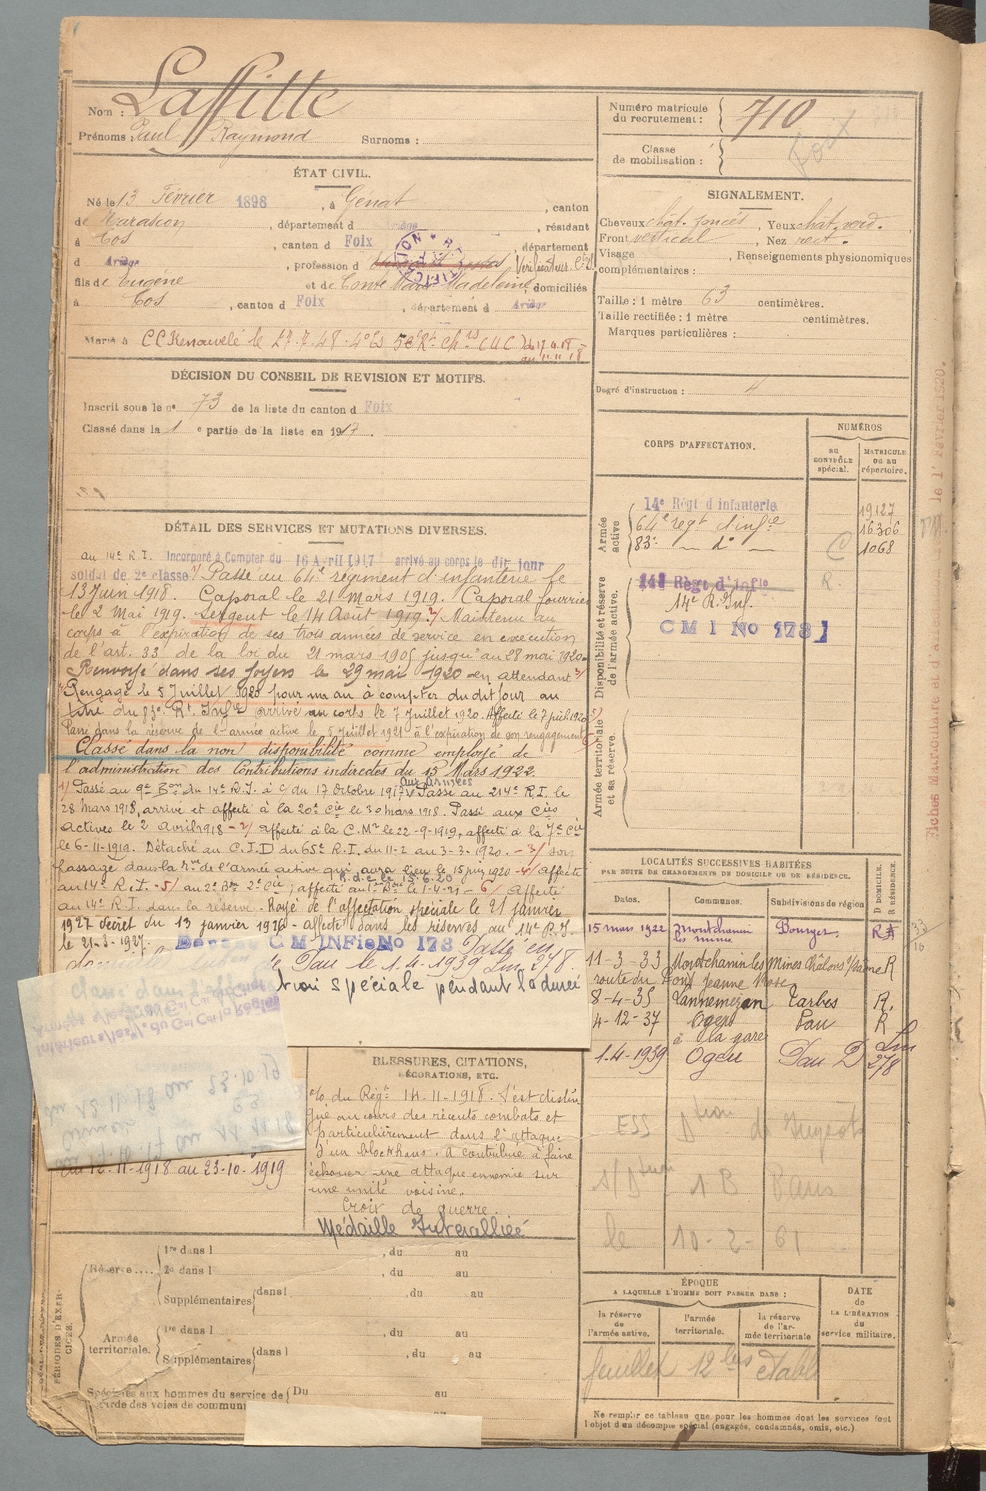 Nom : Laffitte
Prénoms : Paul Raymond Surnoms :
Numéro matricule du recrutement : 710
Classe de mobilisation :
Foix
ÉTAT CIVIL.
Né le 13 Février 1898, à Génat, canton
de Tarascon, département d Ariège, résidant
à Cos, canton d Foix, département
d Ariège, profession d Vérificateur
fils de Eugène et de Comte Marie Madeleine, domiciliés
à Cos, canton d Foix, département d Ariège
Marié à CC Renouvelé le 27.7.48
DÉCISION DU CONSEIL DE REVISION ET MOTIFS.
Inscrit sous le no 73 de la liste du canton d Foix
Classé dans la 1 e partie de la liste en 1917.
SIGNALEMENT.
Cheveux chat. foncés, Yeux chat. verd.
Front vertical, Nez rect.
Visage, Renseignements physionomiques
complémentaires :
Taille : 1 mètre 63 centimètres.
Taille rectifiée : 1 mètre centimètres.
Marques particulières :
Degré d'instruction : 4
DÉTAIL DES SERVICES ET MUTATIONS DIVERSES.
au 14e R.I. Incorporé à Compter du 16 Avril 1917 arrivé au corps le dit jour
soldat de 2e classe. Passé au 64e régiment d'infanterie le
13 Juin 1918. Caporal le 21 Mars 1919. Caporal fourrier
le 2 Mai 1919. Sergent le 14 Août 1919. 2/ Maintenu au
corps à l'expiration de ses trois années de service en exécution
de l'art. 33 de la loi du 21 mars 1905 jusqu'au 28 mai 1920.
Renvoyé dans ses foyers le 29 mai 1920 en attendant 3/
Rengagé le 5 Juillet 1920 pour un an à compter du dit jour au
titre du 83e Rt Infie arrivé au corps le 7 Juillet 1920. Affecté le 7 juil. 1920
Passé dans la réserve de l'armée active le 5 Juillet 1921 à l'expiration de son rengagement
Classé dans la non disponibilité comme employé de
l'administration des Contributions indirectes du 15 Mars 1922.
1/ Passé au 9e Bon du 14e R.I. à C du 17 Octobre 1917 aux armées Passé au 214e R.I. le
28 Mars 1918, arrivé et affecté à la 20e Cie le 30 mars 1918. Passé aux Cies
actives le 2 Avril 1918 - 2/ Affecté à la C.Mre le 22-9-1919, affecté à la 7e Cie
le 6-11-1919. Détaché au C.I.D du 65e R.I. du 11-2 au 3-3-1920. - 3/ son
passage dans la rve de l'armée active qui aura lieu le 15 juin 1920 - 4/ Affecté
au 14e R.I. - 5/ au 2e Bon 2e Cie, affecté au 1er le 1-4-21 - 6/ Affecté
au 14e R.I. dans la réserve. Rayé de l'affectation spéciale le 21 janvier
1927 décret du 13 janvier 1926 - affecté dans les réserves au 14e R.I.
le 21-3-1927. C M INFie No 178 Passé en
de Pau le 1.4-1939 Lm 278.
tion spéciale pendant la durée
classé dans l'affectation
Intérieur
du 12.11.18 au 23.10.19
du 12-11-1918 au 23-10-1919
CORPS D'AFFECTATION.
NUMÉROS
AU CONTRÔLE spécial.
MATRICULE OU AU répertoire.
Armée active
14e Régt d'infanterie 19127
64e regt d'infie 16306
83e — do — C 1068
Disponibilité et réserve de l'armée active.
14e Régt d'Infie R
14e R. Inf.
C M I No 178
Armée territoriale et sa réserve.
LOCALITÉS SUCCESSIVES HABITÉES
PAR SUITE DE CHANGEMENTS DE DOMICILE OU DE RÉSIDENCE.
Dates. Communes. Subdivisions de région D DOMICILE. R RÉSIDENCE.
15 mars 1922 Montchanin les mines Bourges R
11-3-33 Montchanin les Mines Châlons s/ Saône R
route du Pont Jeanne Rose
8-4-35 Lannemezan Tarbes R.
4-12-37 Ogeu Pau R
à la gare
1.4-1939 Ogeu Pau D Lm 278
ESS Dtion
s/Dtion 1 B Paris
le 10-2-61
BLESSURES, CITATIONS, DÉCORATIONS, ETC.
o/o du Régt 14-11-1918. S'est distin
gué au cours des récents combats et
particulièrement dans l'attaque
d'un blockhaus. A contribué à faire
échouer une attaque ennemie sur
une unité voisine.
Croix de guerre.
Médaille Interalliée
PÉRIODES D'EXERCICES.
Réserve
1re dans l , du au
2e dans l , du au
Supplémentaires dans l , du au
Armée territoriale.
1re dans l , du au
Supplémentaires dans l , du au
Spéciales aux hommes du service de garde des voies de commun Du au
ÉPOQUE
A LAQUELLE L'HOMME DOIT PASSER DANS :
la réserve de l'armée active.
l'armée territoriale.
la réserve de l'armée territoriale
DATE de LA LIBÉRATION du service militaire.
feuillet 12 bis établi
Ne remplir ce tableau que pour les hommes dont les services font
l'objet d'un décompte spécial (engagés, condamnés, omis, etc.)
Fiches Matriculaire et d.m. le 1er Février 1920.